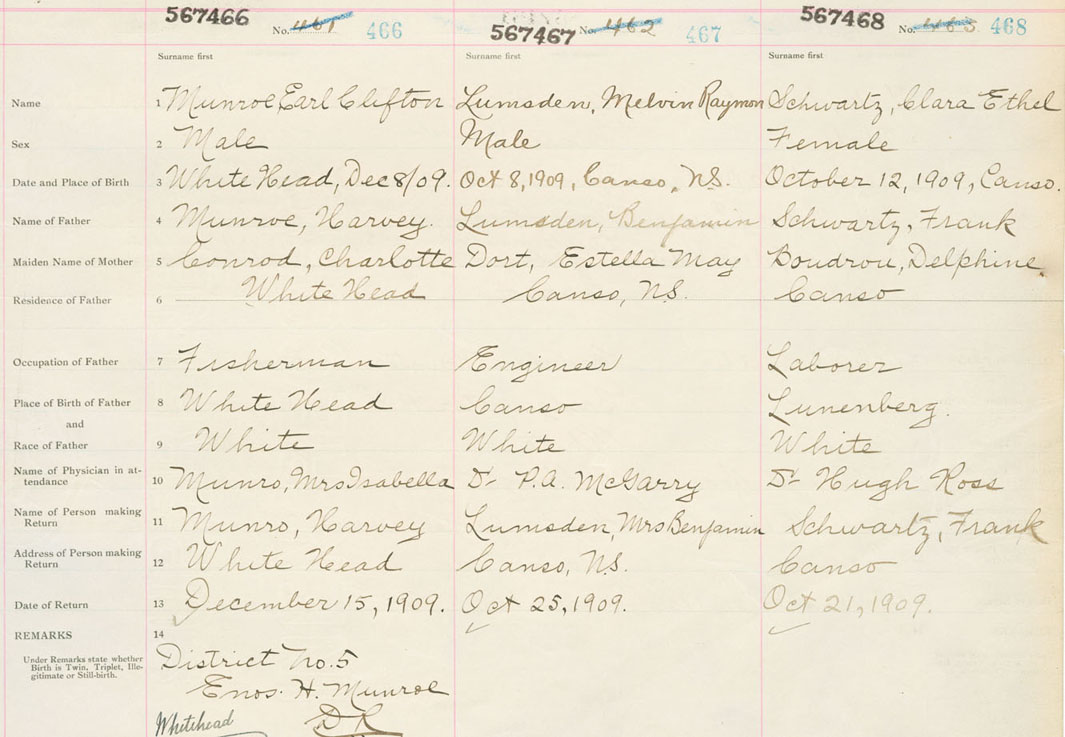 567466 No. 461 466 567467 No. 462 467 567468 No. 463 468
Surname first Surname first Surname first
Name 1 Munroe, Earl Clifton Lumsden, Melvin Raymon Schwartz, Clara Ethel
Sex 2 Male Male Female
Date and Place of Birth 3 White Head, Dec 8/09. Oct 8, 1909, Canso, N.S. October 12, 1909, Canso.
Name of Father 4 Munroe, Harvey. Lumsden, Benjamin Schwartz, Frank
Maiden Name of Mother 5 Conrod, Charlotte Dort, Estella May Boudrou, Delphine.
Residence of Father 6 White Head Canso, N.S. Canso
Occupation of Father 7 Fisherman Engineer Laborer
Place of Birth of Father 8 White Head Canso Lunenberg.
and
Race of Father 9 White White White
Name of Physician in at-
tendance 10 Munro, Mrs Isabella Dr P.A. McGarry Dr Hugh Ross
Name of Person making
Return 11 Munro, Harvey Lumsden, Mrs Benjamin Schwartz, Frank
Address of Person making
Return 12 White Head Canso, N.S. Canso
Date of Return 13 December 15, 1909. Oct 25, 1909. Oct 21, 1909.
REMARKS 14
Under Remarks state whether
Birth is Twin, Triplet, Ille-
gitimate or Still-birth.
District No. 5
Enos. H. Munroe
Whitehead D R